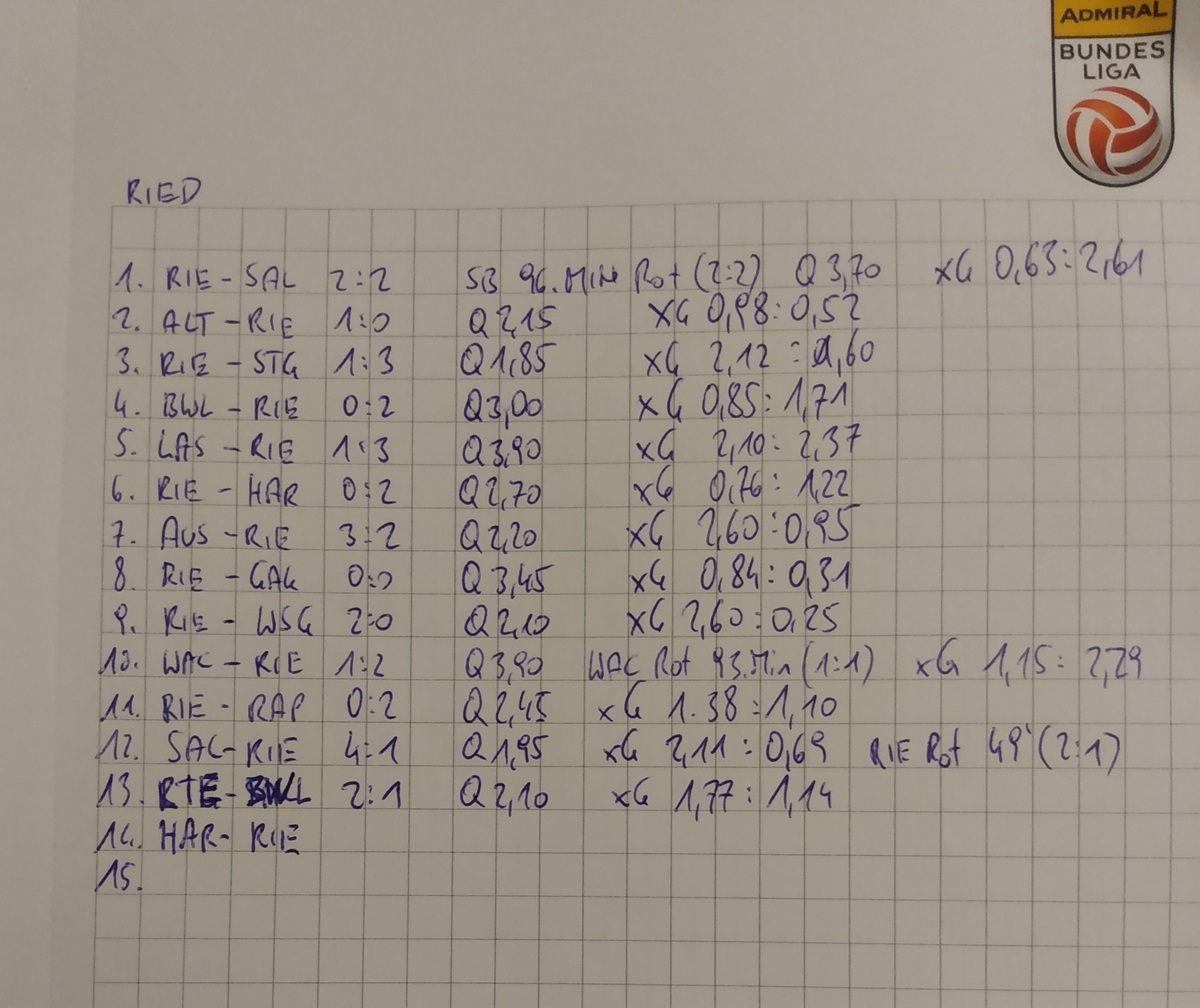 ADMIRAL
BUNDES
LIGA
RIED
1. RIE - SAL 2:2 SB 96. MIN Rot (2:2) Q 3,70 xG 0,63:2,61
2. ALT - RIE 1:0 Q 2,15 xG 0,98:0,52
3. RIE - STG 1:3 Q 1,85 xG 2,12:1,60
4. BWL - RIE 0:2 Q 3,00 xG 0,85:1,71
5. LAS - RIE 1:3 Q 3,90 xG 2,10:2,37
6. RIE - HAR 0:2 Q 2,70 xG 0,76:1,22
7. AUS - RIE 3:2 Q 2,20 xG 2,60:0,95
8. RIE - GAK 0:0 Q 3,45 xG 0,84:0,31
9. RIE - WSG 2:0 Q 2,10 xG 2,60:0,25
10. WAC - RIE 1:2 Q 3,90 WAC Rot 93. Min (1:1) xG 1,15:2,29
11. RIE - RAP 0:2 Q 2,45 xG 1.38:1,10
12. SAL - RIE 4:1 Q 1,95 xG 2,11:0,69 RIE Rot 49' (2:1)
13. RIE - BWL 2:1 Q 2,10 xG 1,77:1,14
14. HAR - RIE
15.